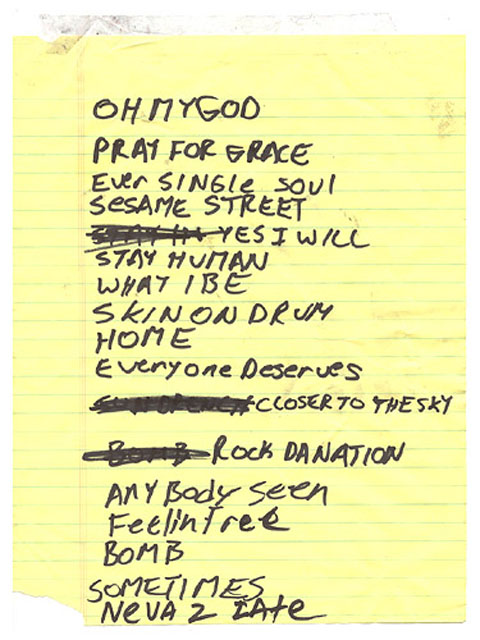 OH MY GOD
PRAY FOR GRACE
Ever SINGle SOUl
SeSAME STREET
YES I WILL
STAY HUMAN
WHAT I BE
SKIN ON DRUM
HOME
Everyone Deserves
CLOSER TO THE SKY
BOMB Rock DA NATION
ANYBody Seen
Feelin Free
BOMB
SOMETIMES
NeVA 2 LAte